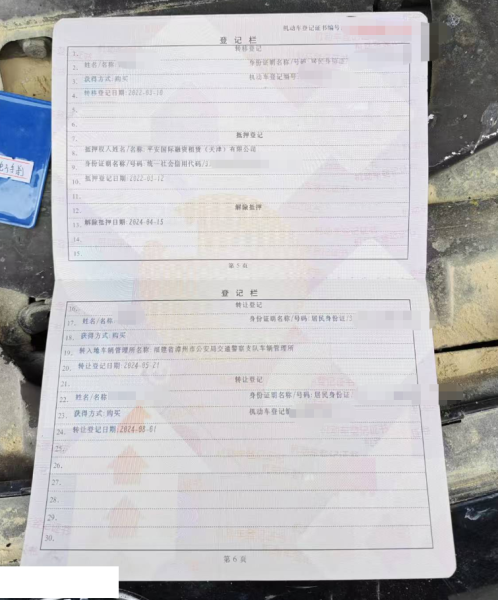 机动车登记证书编号:
登记栏
1. 转移登记
2. 姓名/名称 身份证明名称/号码
3. 获得方式:购买 机动车登记编号
4. 转移登记日期:2022-03-10
5.
6.
7. 抵押登记
8. 抵押权人姓名/名称:平安国际融资租赁(天津)有限公司
9. 身份证明名称/号码:统一社会信用代码/
10. 抵押登记日期:2022-03-12
11.
12. 解除抵押
13. 解除抵押日期:2024-04-15
14.
15.
第5页
登记栏
16. 转让登记
17. 姓名/名称 身份证明名称/号码:居民身份证/
18. 获得方式:购买
19. 转入地车辆管理所名称:福建省漳州市公安局交通警察支队车辆管理所
20. 转让登记日期:2024-05-21
21. 转让登记
22. 姓名/名称 身份证明名称/号码:居民身份证/
23. 获得方式:购买 机动车登记
24. 转让登记日期:2024-08-01
25.
26.
27.
28.
29.
30.
第6页